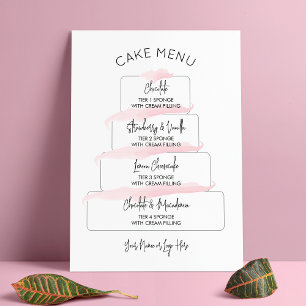 CAKE MENU
Chocolate
TIER 1 SPONGE
WITH CREAM FILLING
Strawberry & Vanilla
TIER 2 SPONGE
WITH CREAM FILLING
Lemon Cheesecake
TIER 3 SPONGE
WITH CREAM FILLING
Chocolate & Macadamia
TIER 4 SPONGE
WITH CREAM FILLING
Your Name or Logo Here